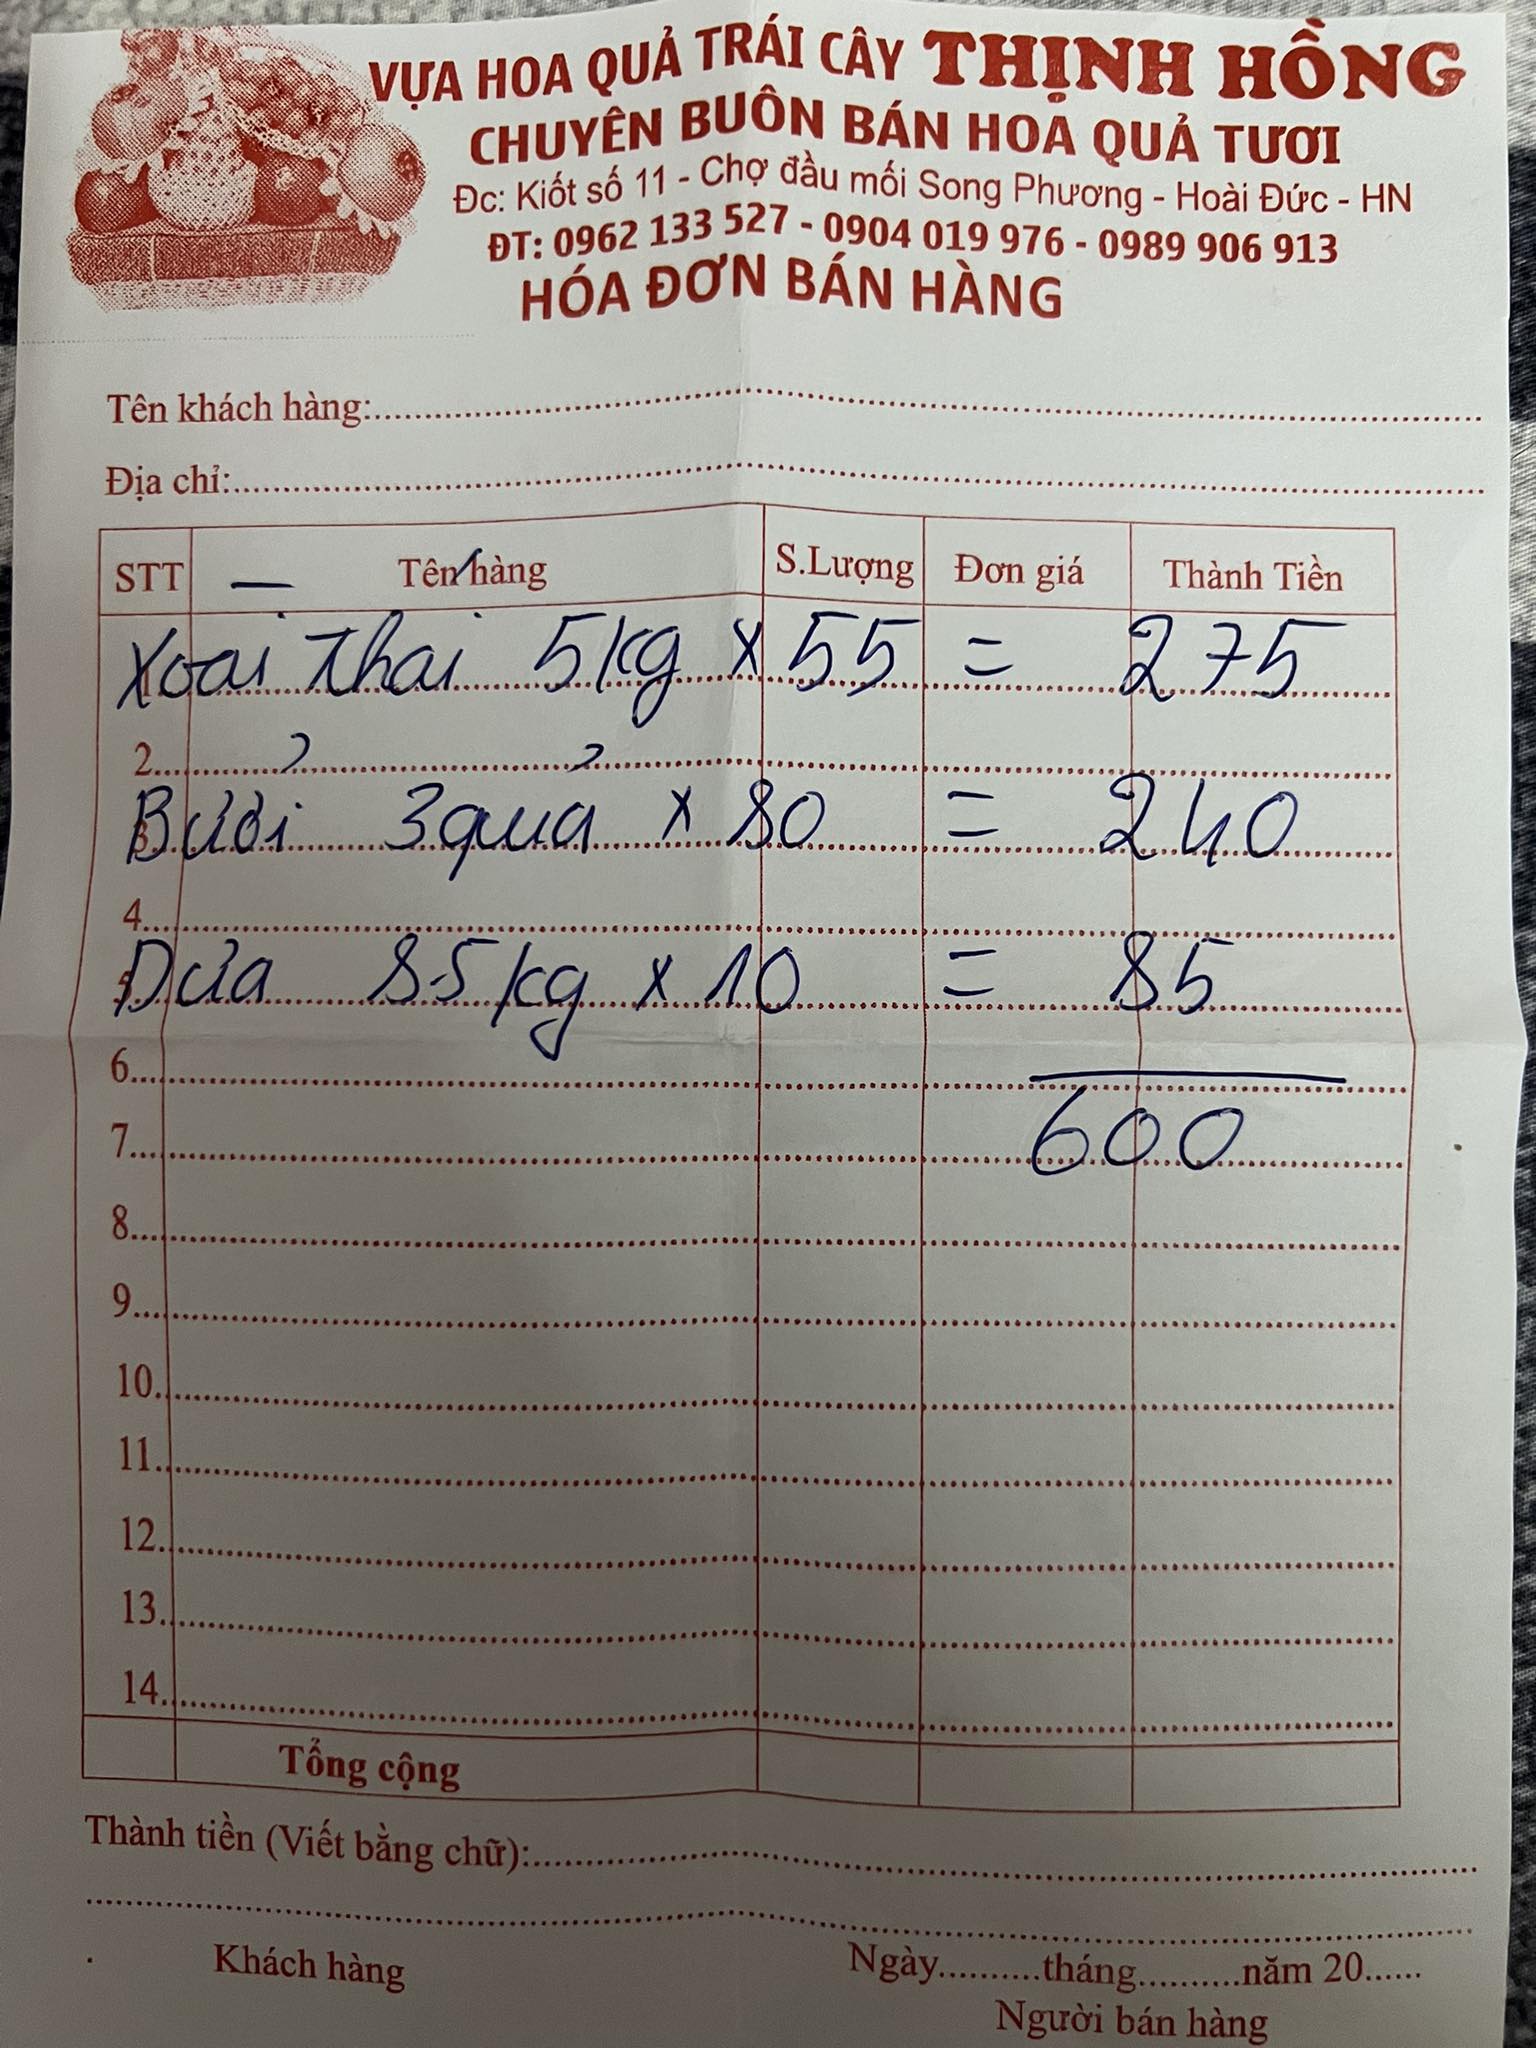 VỰA HOA QUẢ TRÁI CÂY THỊNH HỒNG
CHUYÊN BUÔN BÁN HOA QUẢ TƯƠI
Đc: Kiốt số 11 - Chợ đầu mối Song Phương - Hoài Đức - HN
ĐT: 0962 133 527 - 0904 019 976 - 0989 906 913
HÓA ĐƠN BÁN HÀNG
Tên khách hàng:
Địa chỉ:
STT Tên hàng S.Lượng Đơn giá Thành Tiền
Xoài thái 5kg x 55 = 275
2
3 Bưởi 3 quả x 80 = 240
4
5 Dưa 8.5kg x 10 = 85
6
7 600
8
9
10
11
12
13
14
Tổng cộng
Thành tiền (Viết bằng chữ):
Khách hàng Ngày..........tháng..........năm 20......
Người bán hàng